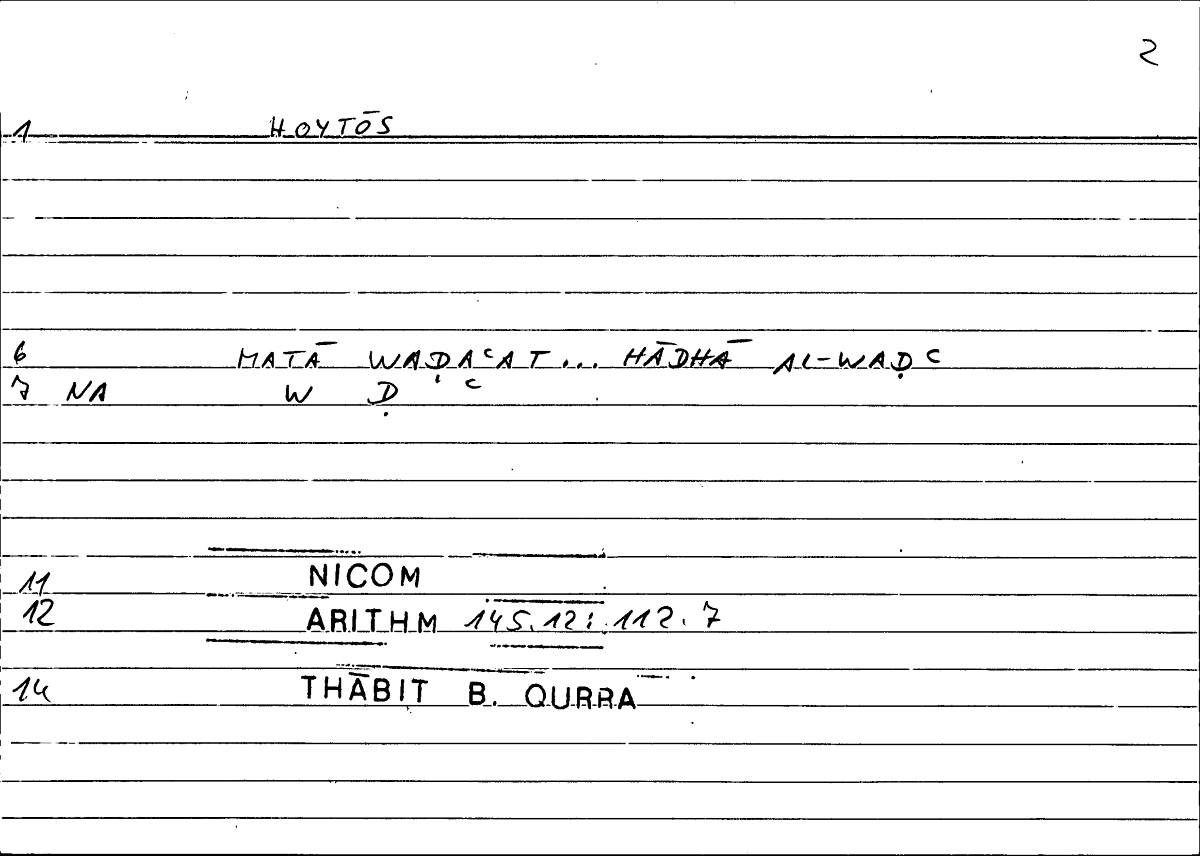 2
1 HOYTŌS
6 MATĀ WAḌAʿAT... HĀDHĀ AL-WAḌʿ
7 NA W Ḍ ʿ
11 NICOM
12 ARITHM 145.12; 112.7
14 THĀBIT B. QURRA